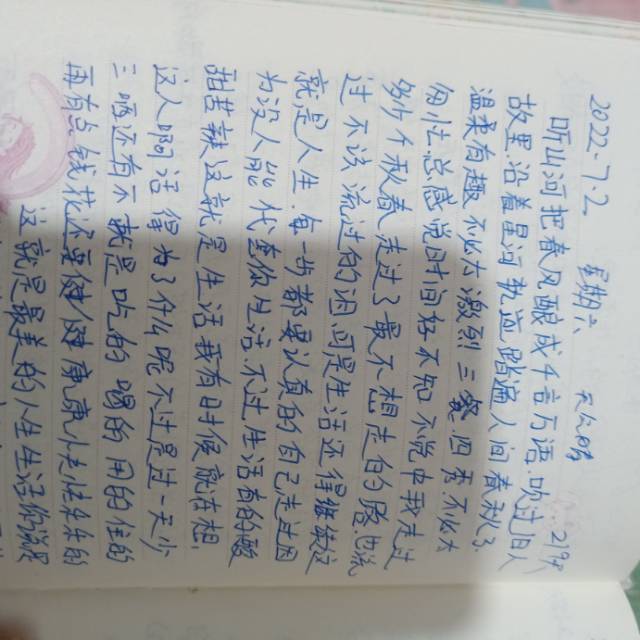 2022.7.2 星期六 天气晴 219
听山河把春风酿成千言万语.吹过旧人
故里沿着星河执迷踏遍人间春秋
温柔有趣不必太激烈三餐四季不必太
匆忙总感说时间好不知不觉中我走过
个秋春走过了最不想走的路也说
过不该流过的泪可是生活还得继续这
就是人生.每一步都要认真的自己走过因
为没人能代替你生活不过生活有的酸
甜苦辣这就是生活我有时候就在想
这人啊活得为了什么呢不过是过一天少
三晒还有不就是吃的喝的用的住的
再有点钱花这里健健康康
这就是最美的人生生活你深